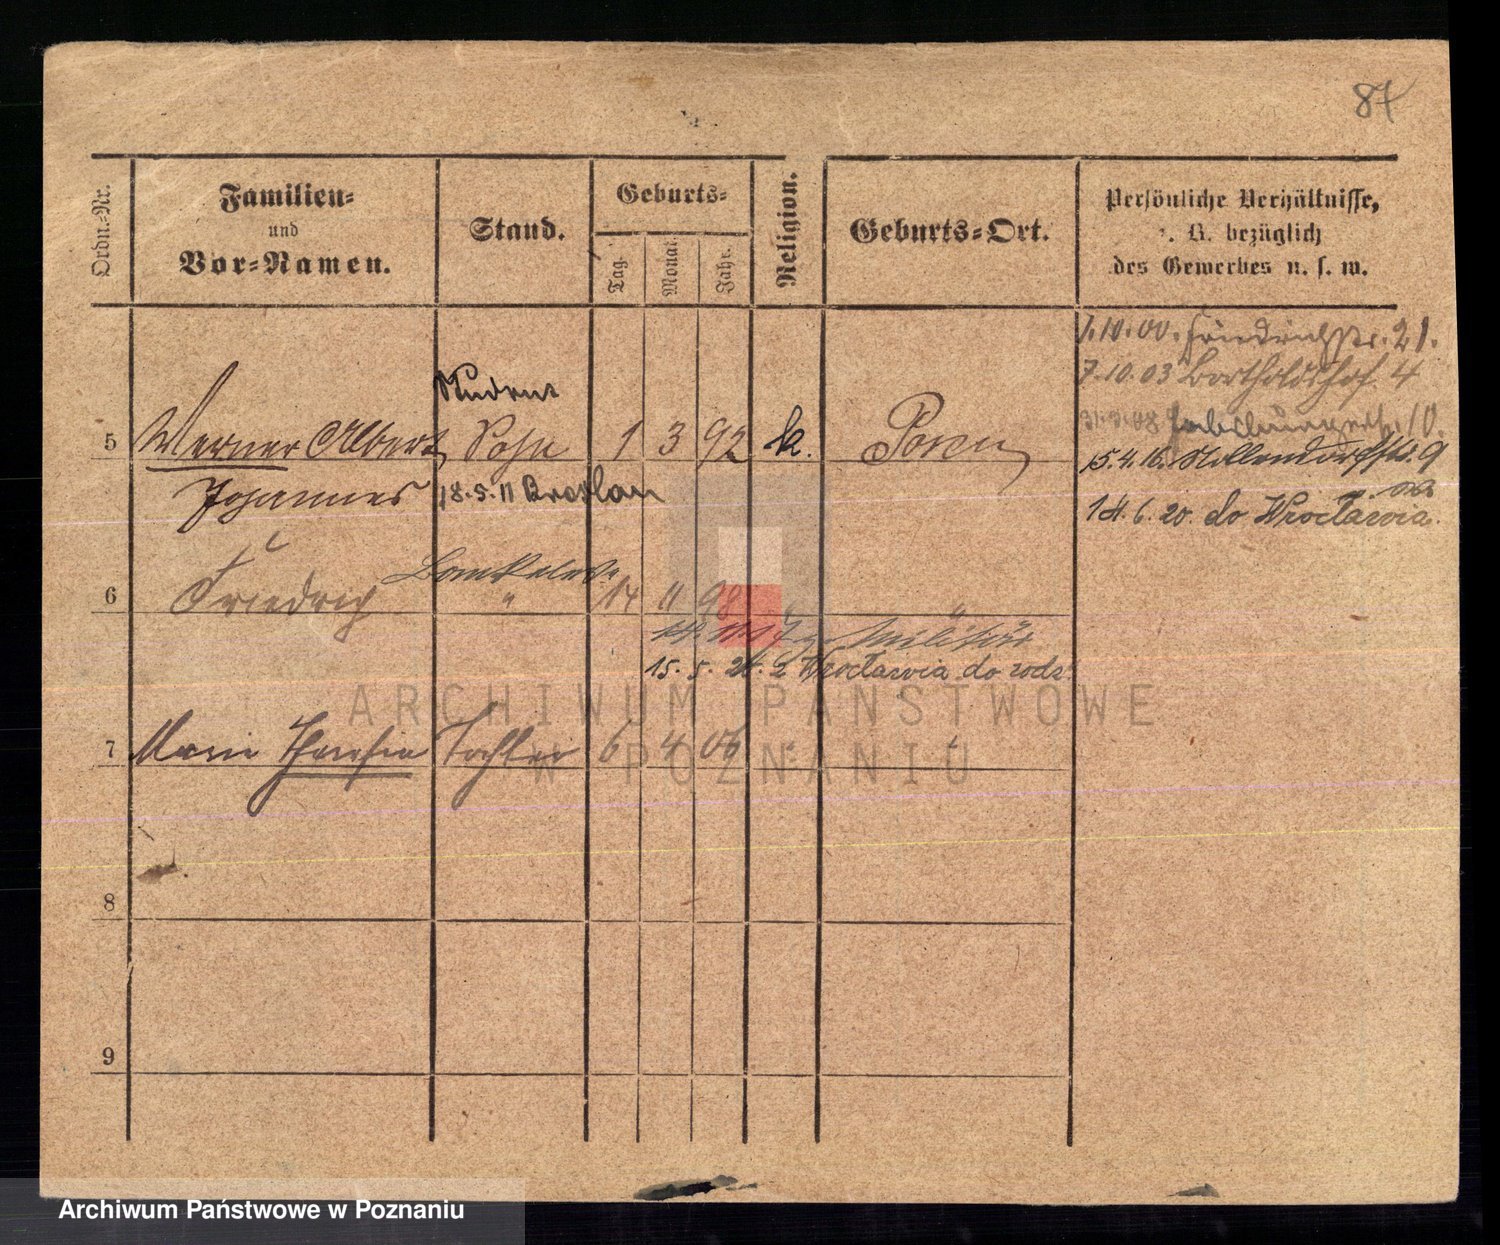 87
Ordn.-Nr.
Familien-
und
Vor-Namen.
Stand.
Geburts-
Tag.
Monat.
Jahr.
Religion.
Geburts-Ort.
Persönliche Verhältnisse,
z. B. bezüglich
des Gewerbes u. s. w.
1.10.00. Friedrichstr. 21.
7.10.03 Bartholdshof 4
10.
15.4.16. Nollendorfstr. 9
14.6.20. do Wrocławia.
Student
5 Werner Albert Sohn 1 3 92 k. Posen
Johannes 18.5.11 Breslau
6 Friedrich " 14 11 98 " "
z. Militär
15.5.24. z Wrocławia do rodz.
7 Marie Theresia Tochter 6 4 06 " "
8
9
ARCHIWUM PAŃSTWOWE
W POZNANIU
Archiwum Państwowe w Poznaniu